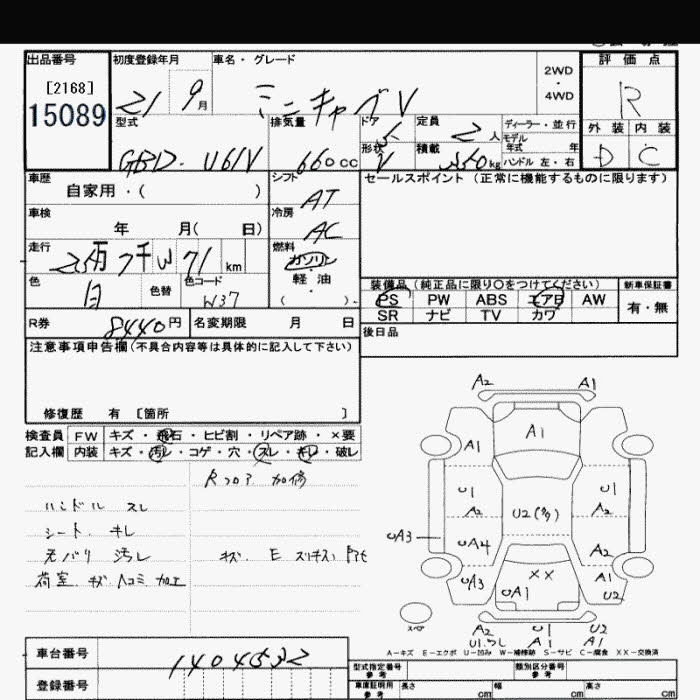 出品番号
[2168]
15089
初度登録年月
21 9月
車名・グレード
ミニキャブV
2WD
・
4WD
評価点
R
外装 内装
D C
型式
GBD・U61V
排気量
660cc
ドア 5
形状 V
定員
2人
積載
350kg
ディーラー・並行
モデル
年式 年
ハンドル 左・右
車歴
自家用・( )
シフト
AT
セールスポイント(正常に機能するものに限ります)
車検
年 月( 日)
冷房
AC
走行
km
燃料
ガソリン
軽・油
( )
色
白
色替
色コード
W37
装備品(純正品に限り○をつけてください)
新車保証書
PS PW ABS エアB AW
SR ナビ TV カワ
有・無
R券
8440円
名変期限 月 日
後日品
注意事項申告欄(不具合内容等は具体的に記入して下さい)
修復歴 有 [箇所 ]
検査員
記入欄
FW キズ・飛石・ヒビ割・リペア跡・×要
内装 キズ・汚レ・コゲ・穴・スレ・キレ・破レ
Rフロア 加修
ハンドル スレ
シート キレ
内バリ 汚レ
荷室 キズ 凹コミ 加工
キズ E
A2 A1
A1
A1
U1 U1
A2 A2
U2(多)
UA3
UA4 A2
UA3
UA1
XX
A1
U2
スペア
A2 U1 U2
A1 A1
A−キズ E−エクボ U−凹み W−補修跡 S−サビ C−腐食 XX−交換済
車台番号
1404532
登録番号
型式指定番号
参考
類別区分番号
参考
車庫証明用
参考
長さ cm
幅 cm
高さ cm